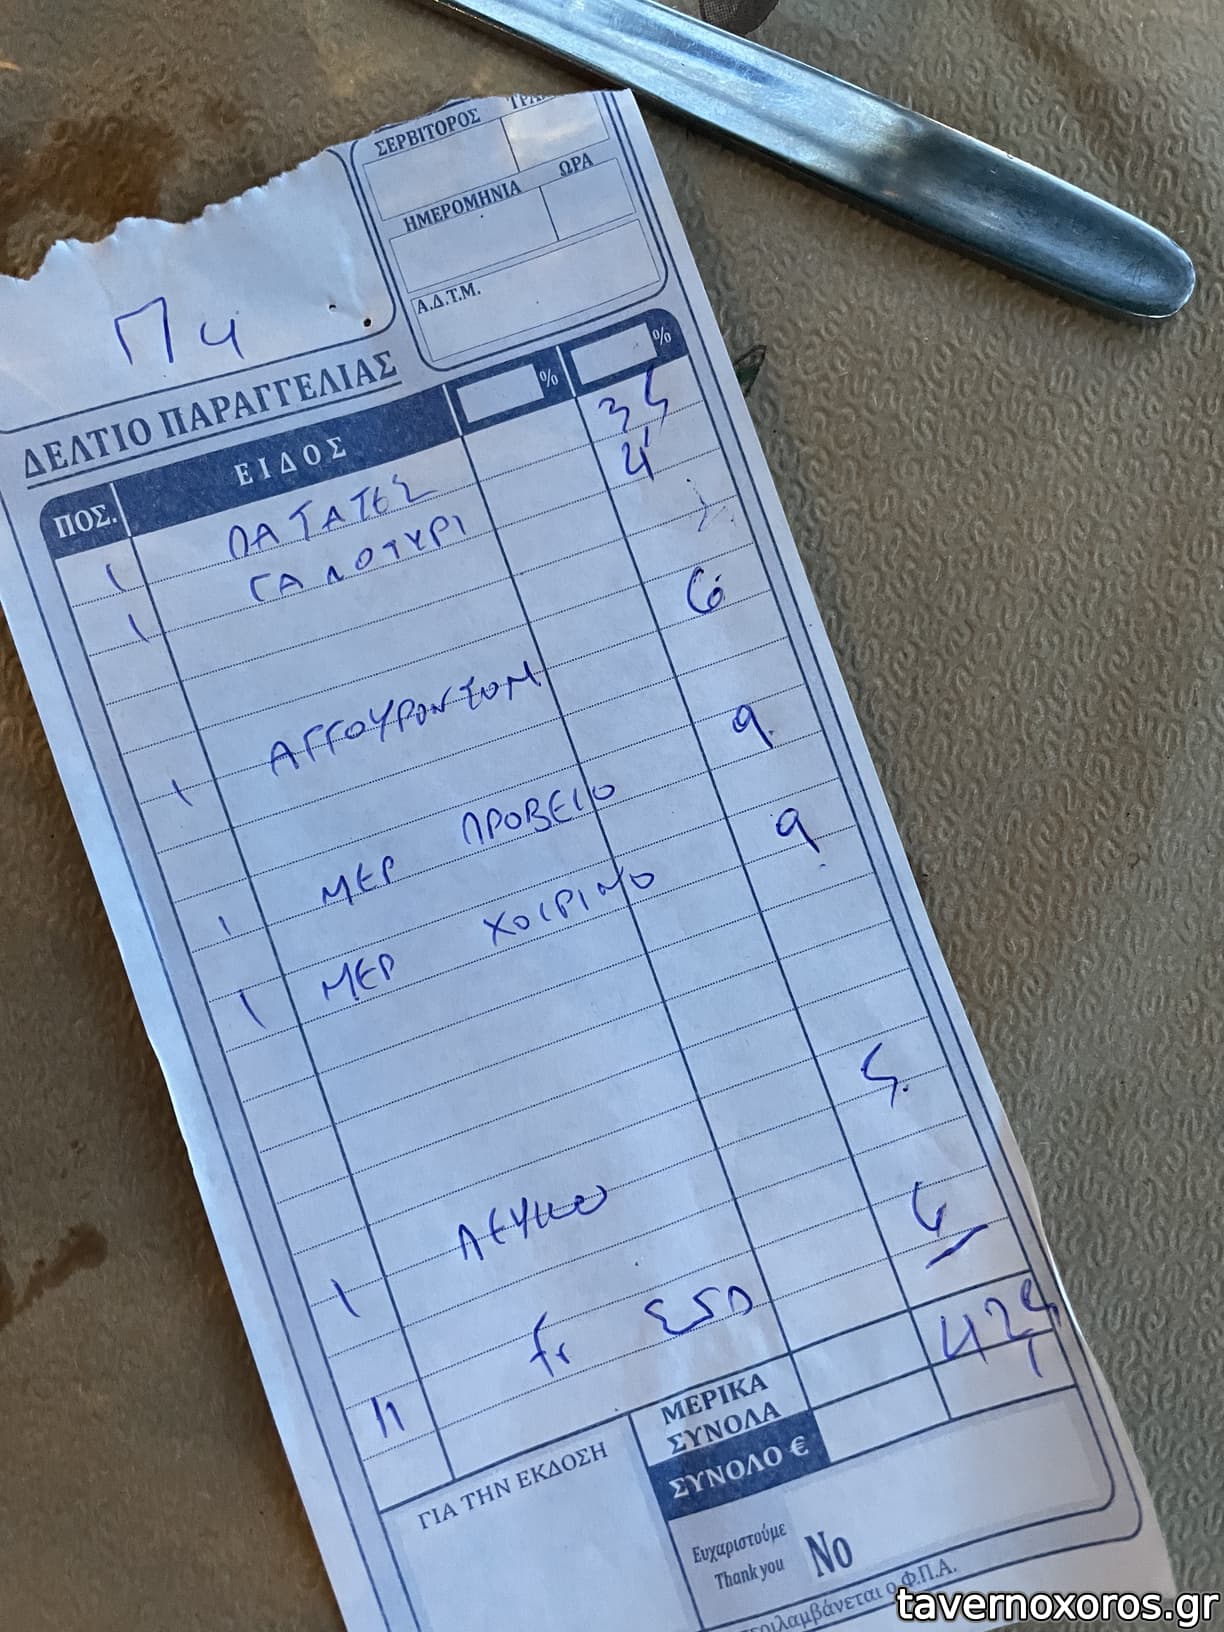 ΣΕΡΒΙΤΟΡΟΣ
ΗΜΕΡΟΜΗΝΙΑ ΩΡΑ
Α.Δ.Τ.Μ.
Π4
ΔΕΛΤΙΟ ΠΑΡΑΓΓΕΛΙΑΣ
ΠΟΣ. ΕΙΔΟΣ % %
1 ΠΑΤΑΤΕΣ 3,5
1 ΓΑΛΟΤΥΡΙ 4
1 ΑΓΓΟΥΡΟΝΤΟΜ 6
1 ΜΕΡ ΠΡΟΒΕΙΟ 9
1 ΜΕΡ ΧΟΙΡΙΝΟ 9
1 ΛΕΥΚΟ 5
fr
42,5
ΜΕΡΙΚΑ
ΣΥΝΟΛΑ
ΣΥΝΟΛΟ €
ΓΙΑ ΤΗΝ ΕΚΔΟΣΗ
Ευχαριστούμε
Thank you No
εριλαμβάνεται ο Φ.Π.Α.
tavernoxoros.gr